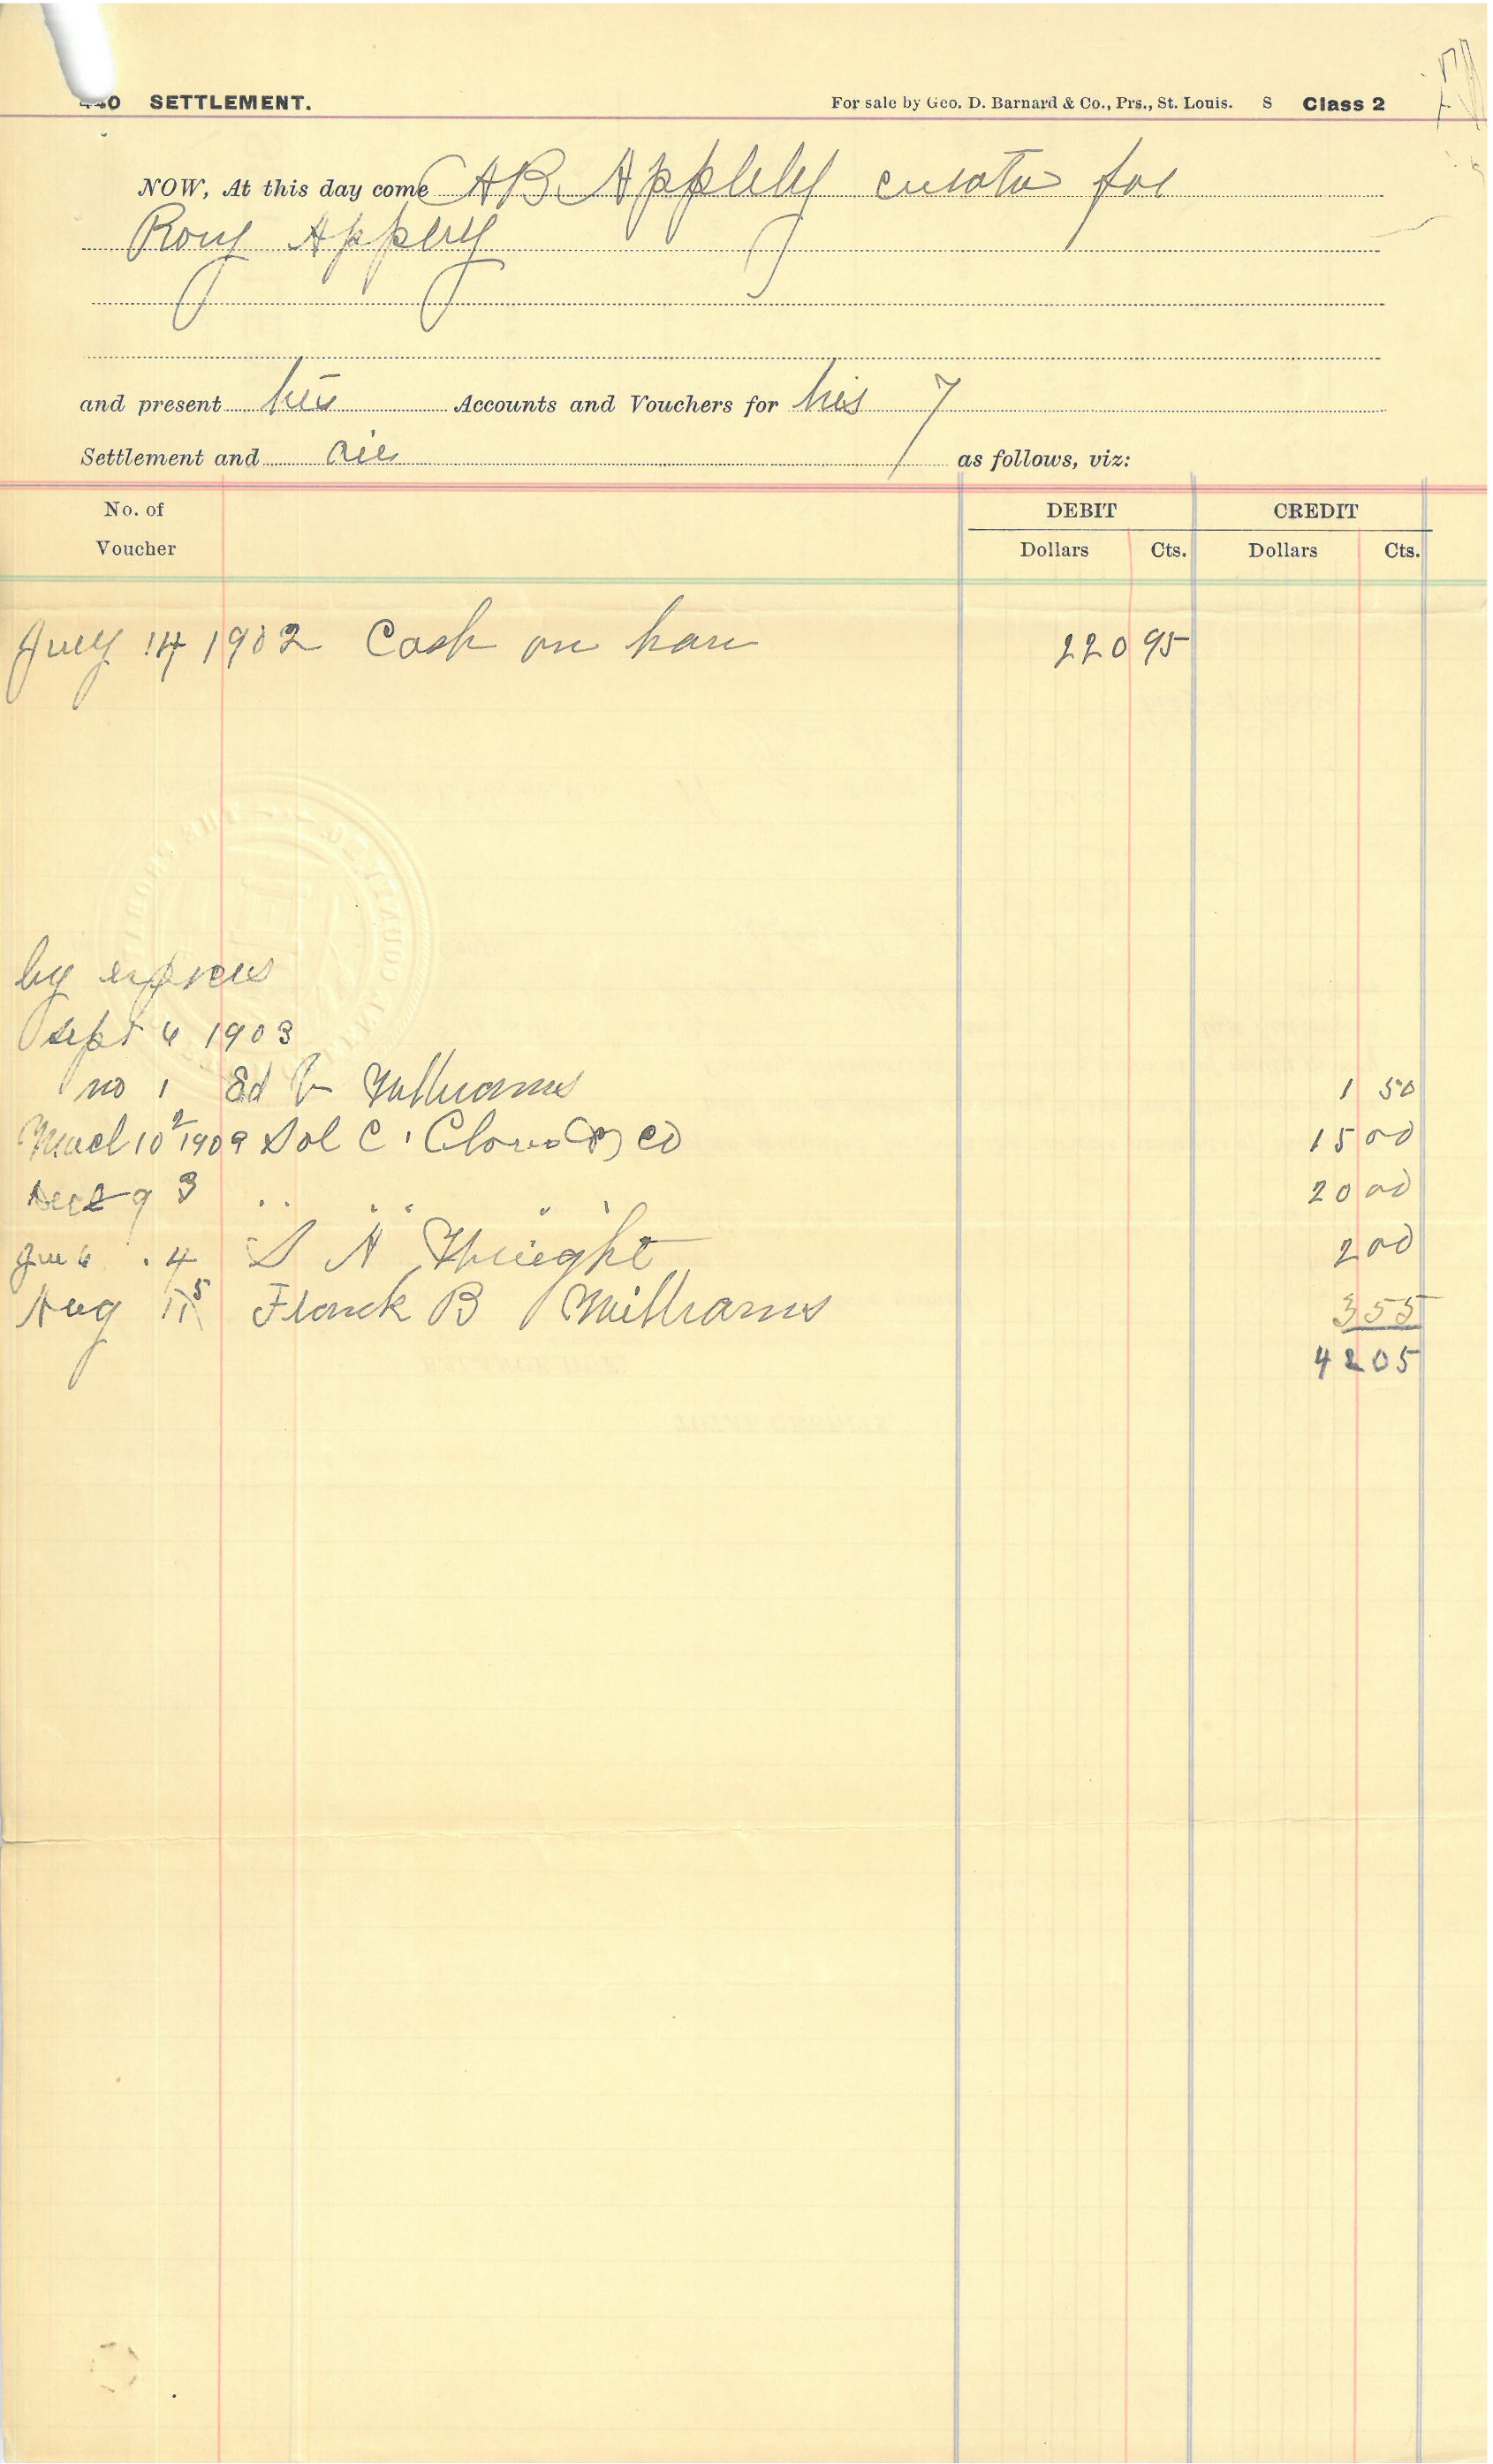 440 SETTLEMENT. For sale by Geo. D. Barnard & Co., Prs., St. Louis. S Class 2
NOW, At this day come AB. Appleby curator for
Rony Appleby
and present his Accounts and Vouchers for his 7
Settlement and as follows, viz:
No. of Voucher DEBIT CREDIT
Dollars Cts. Dollars Cts.
July 14 1902 Cash on han 220 95
by
Sept 6 1903
no 1 Ed V Williams 1 50
10 2 1909 Sol C. & Co 15 00
9 3 " " " " 20 00
4 S A 2 00
Aug 5 Franck B Williams 3 55
42 05